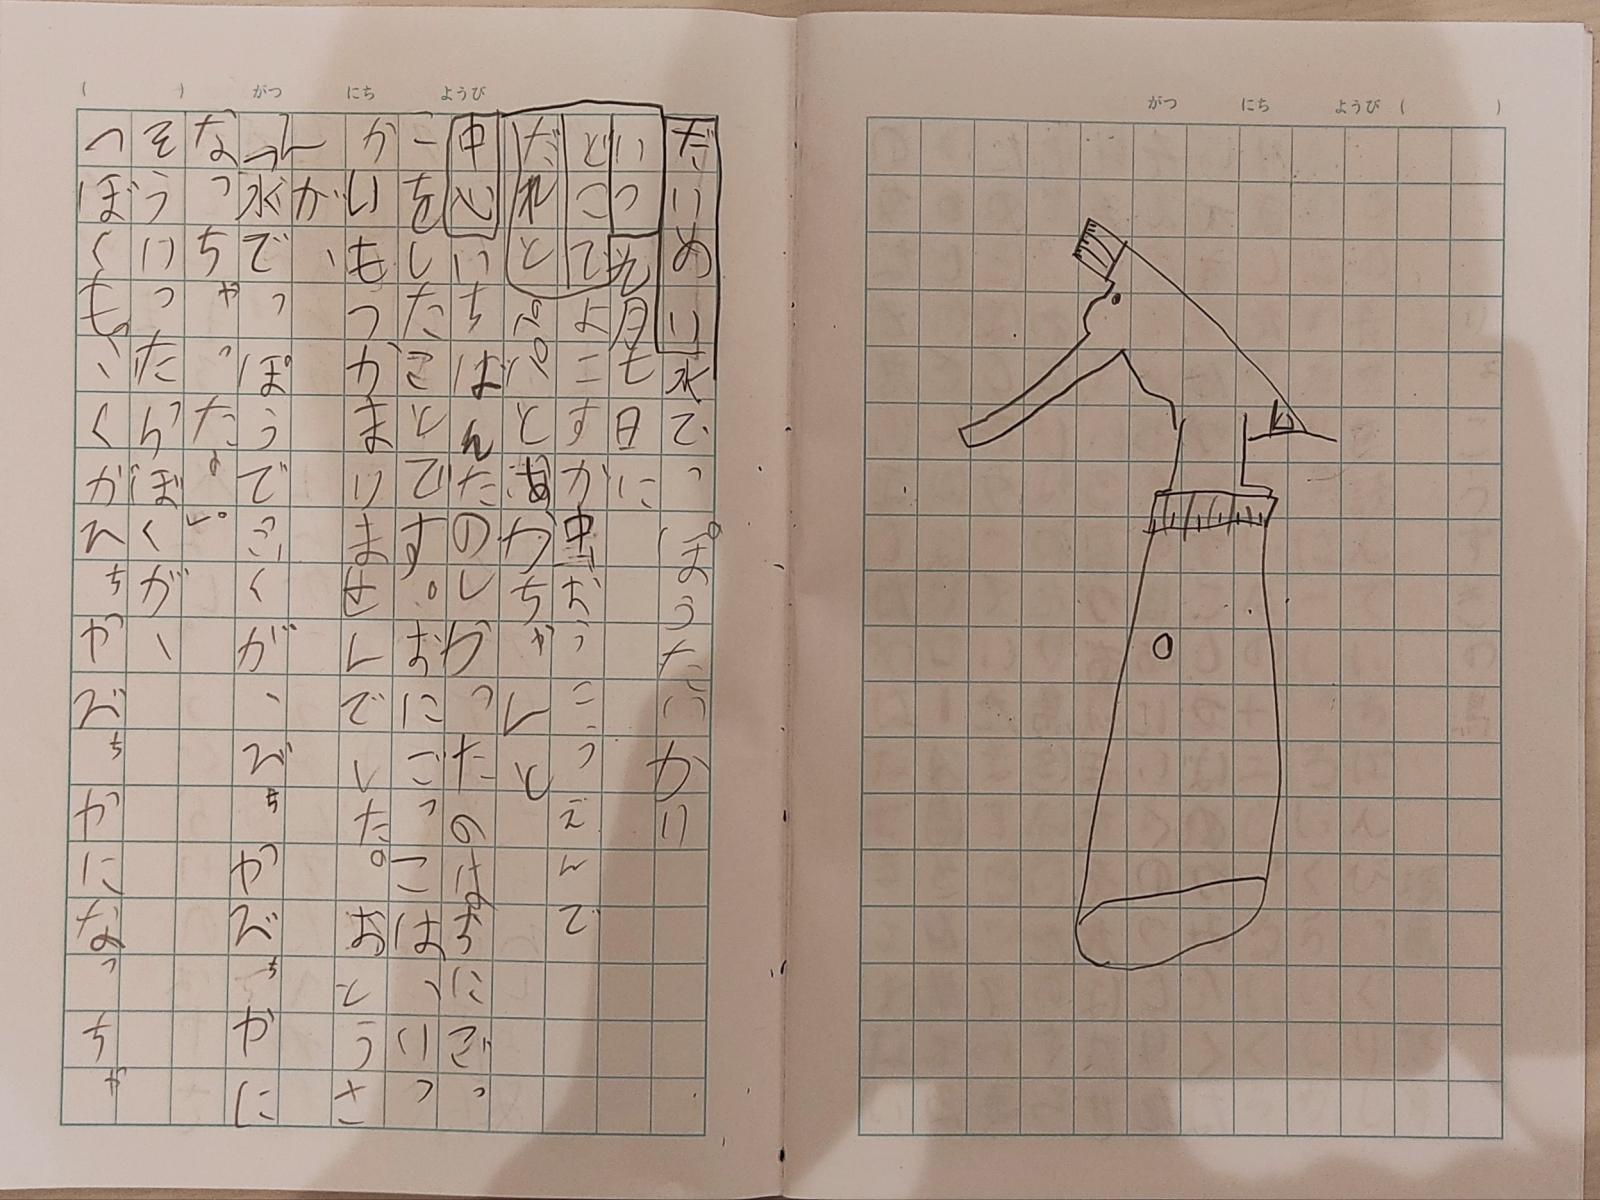 がつ にち ようび ( )
( ) がつ にち ようび
だいめい水でっぽうたいかい
いつ 月七日に
どこでよこすか中おうこうえんで
だれとパパとあかちゃんと
中心いちばんたのしかったのはおにごっ
こをしたことです。おにごっこはいっ
かいもつかまりませんでした。おとうさ
んが、
水でっぽうでごくが、びちゃびちゃに
なっちゃったよ。
そういったらぼくが、
つぼくも、くがひちゃびちかになっちゃ